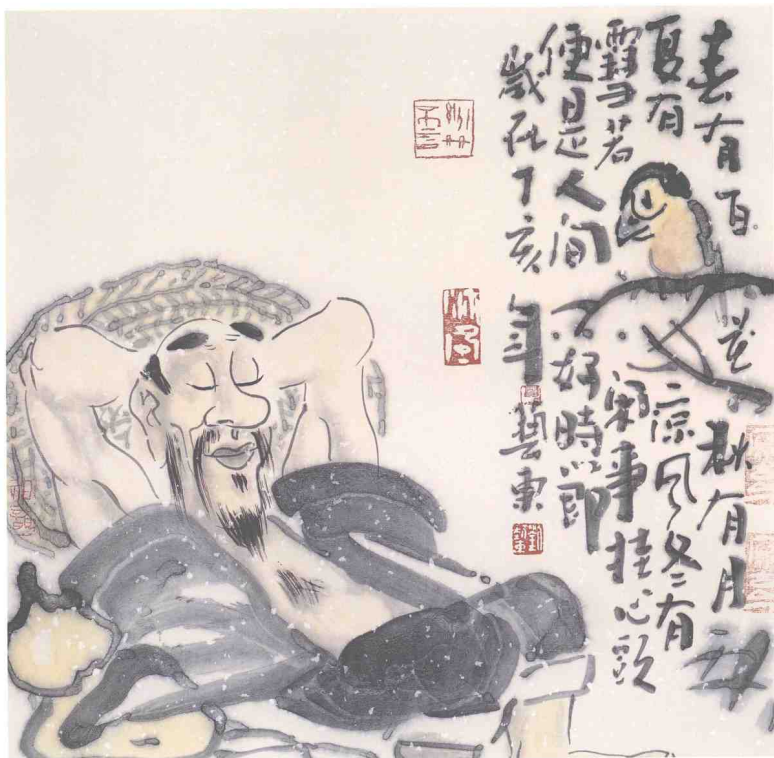 春有百花秋有月
夏有凉风冬有
雪若闲事挂心頭
便是人间好時節
歲在丁亥年藝東